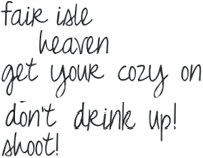 fair isle
heaven
get your cozy on
don't drink up!
shoot!